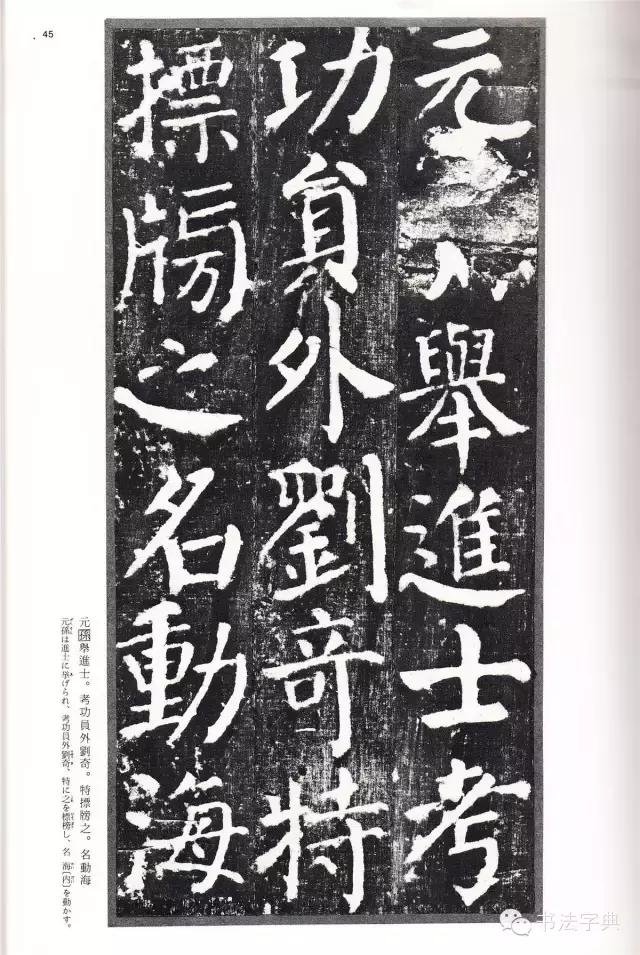 45
元
舉進士考
功員外劉奇特
摽牓之名動海
元孫舉進士。考功員外劉奇。特摽牓之。名動海
元孫は進士に挙げられ、考功員外劉奇、特に之を標榜し、名 海〔内〕を動かす。
书法字典